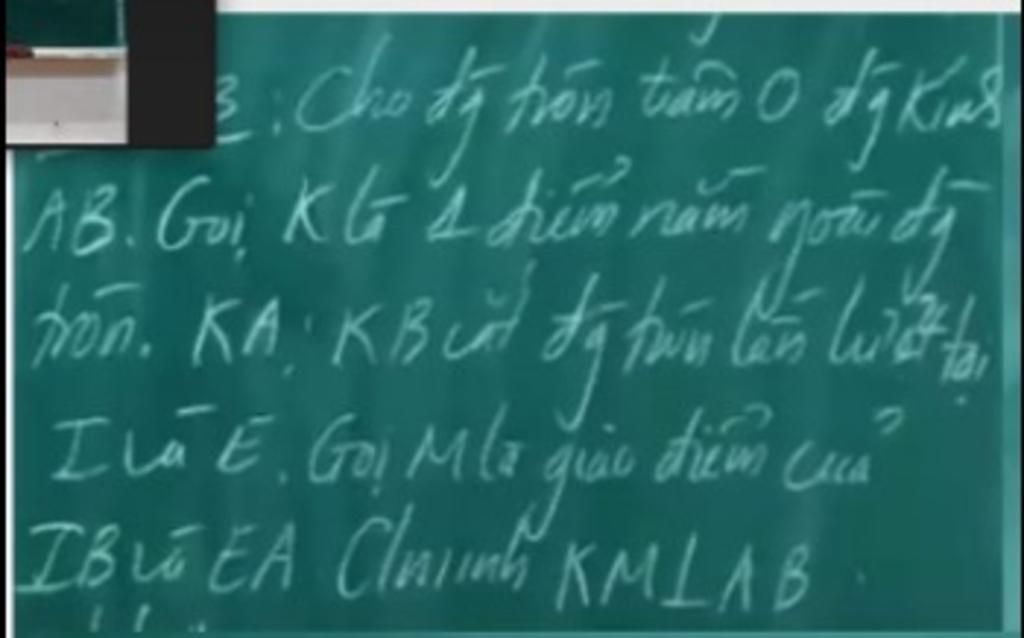 3: Cho đg tròn tâm O đg Kính
AB. Gọi K là 1 điểm nằm ngoài đg
tròn. KA, KB cắt đg tròn lần lượt tại
I và E. Gọi M là giao điểm của
IB và EA C/minh KM⊥AB